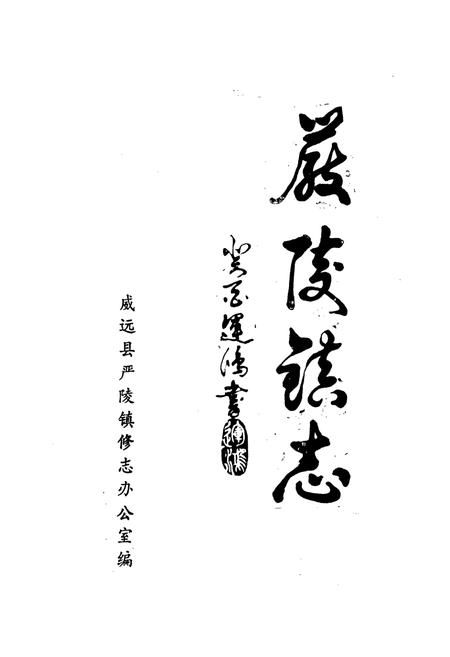 嚴陵鎮志
運鴻書
運鴻
威远县严陵镇修志办公室编